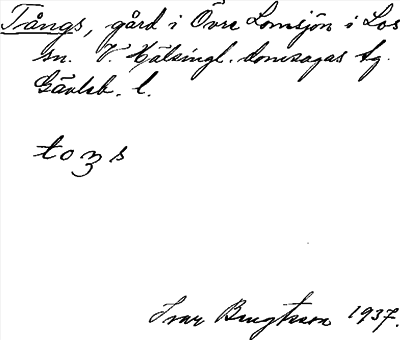 Tångs, gård i Övre Lomsjön i Los
sn. V. Hälsingl. domsagas tg.
Gävleb. l.
toŋs
Ivar Bengtsson 1937.